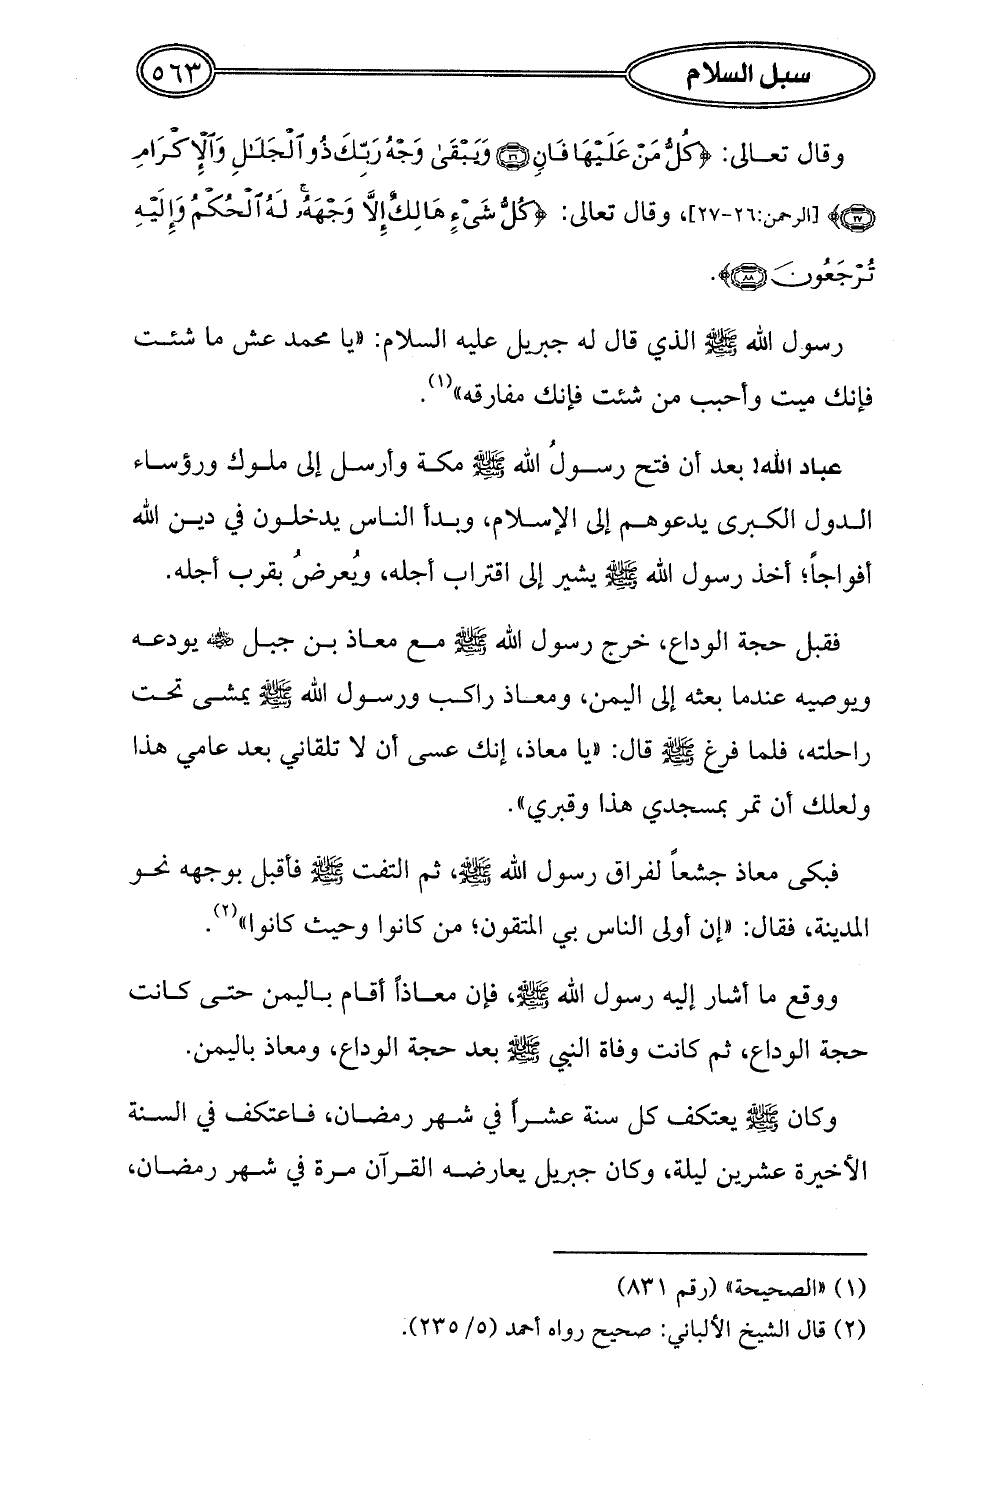 سبل السلام ٥٦٣
وقال تعالى: ﴿كُلُّ مَنْ عَلَيْهَا فَانٍ ۝٢٦ وَيَبْقَىٰ وَجْهُ رَبِّكَ ذُو ٱلْجَلَـٰلِ وَٱلْإِكْرَامِ
۝٢٧﴾ [الرحمن:٢٦-٢٧]، وقال تعالى: ﴿كُلُّ شَىْءٍ هَالِكٌ إِلَّا وَجْهَهُۥ ۚ لَهُ ٱلْحُكْمُ وَإِلَيْهِ
تُرْجَعُونَ ۝٨٨﴾.
رسول الله ﷺ الذي قال له جبريل عليه السلام: «يا محمد عش ما شئت
فإنك ميت وأحبب من شئت فإنك مفارقه»(١).
عباد الله! بعد أن فتح رسولُ الله ﷺ مكة وأرسل إلى ملوك ورؤساء
الدول الكبرى يدعوهم إلى الإسلام، وبدأ الناس يدخلون في دين الله
أفواجاً؛ أخذ رسول الله ﷺ يشير إلى اقتراب أجله، ويُعرضُ بقرب أجله.
فقبل حجة الوداع، خرج رسول الله ﷺ مع معاذ بن جبل رضي الله عنه يودعه
ويوصيه عندما بعثه إلى اليمن، ومعاذ راكب ورسول الله ﷺ يمشي تحت
راحلته، فلما فرغ ﷺ قال: «يا معاذ، إنك عسى أن لا تلقاني بعد عامي هذا
ولعلك أن تمر بمسجدي هذا وقبري».
فبكى معاذ جشعاً لفراق رسول الله ﷺ، ثم التفت ﷺ فأقبل بوجهه نحو
المدينة، فقال: «إن أولى الناس بي المتقون؛ من كانوا وحيث كانوا»(٢).
ووقع ما أشار إليه رسول الله ﷺ، فإن معاذاً أقام باليمن حتى كانت
حجة الوداع، ثم كانت وفاة النبي ﷺ بعد حجة الوداع، ومعاذ باليمن.
وكان ﷺ يعتكف كل سنة عشراً في شهر رمضان، فاعتكف في السنة
الأخيرة عشرين ليلة، وكان جبريل يعارضه القرآن مرة في شهر رمضان،
(١) «الصحيحة» (رقم ٨٣١)
(٢) قال الشيخ الألباني: صحيح رواه أحمد (٥/ ٢٣٥).